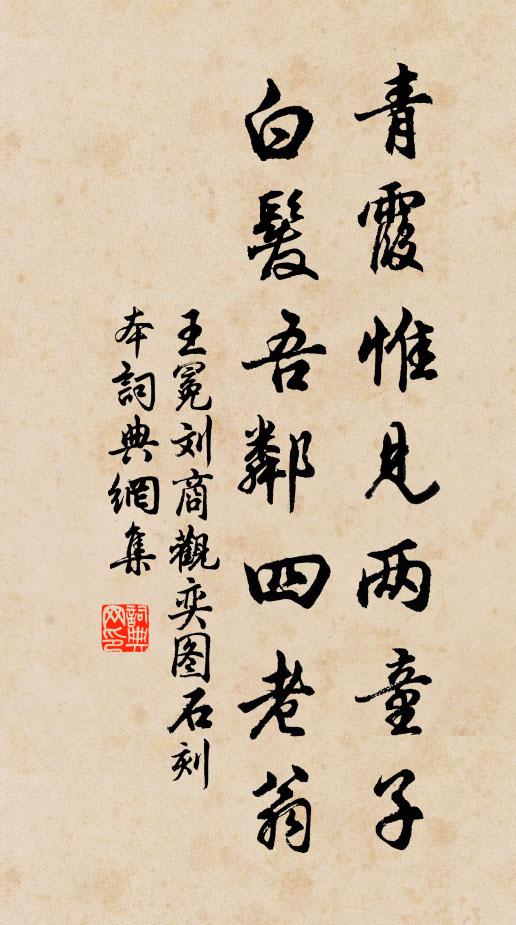 青霞惟见两童子
白髮吾鄰四老翁
王冕刘商觀奕图石刻
本詞典網集
詞典网印